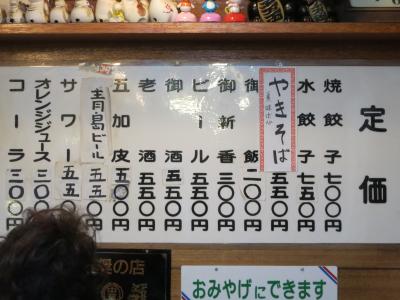 定価
焼餃子 七〇〇円
水餃子 七〇〇円
やきそば 五五〇円
御飯 二〇〇円
御新香 三〇〇円
ビール 五五〇円
御酒 五五〇円
老酒 五五〇円
五加皮 五五〇円
青島ビール 五五〇円
サワー 五五〇円
オレンジジュース 三〇〇円
コーラ 三〇〇円
の店
おみやげにできます